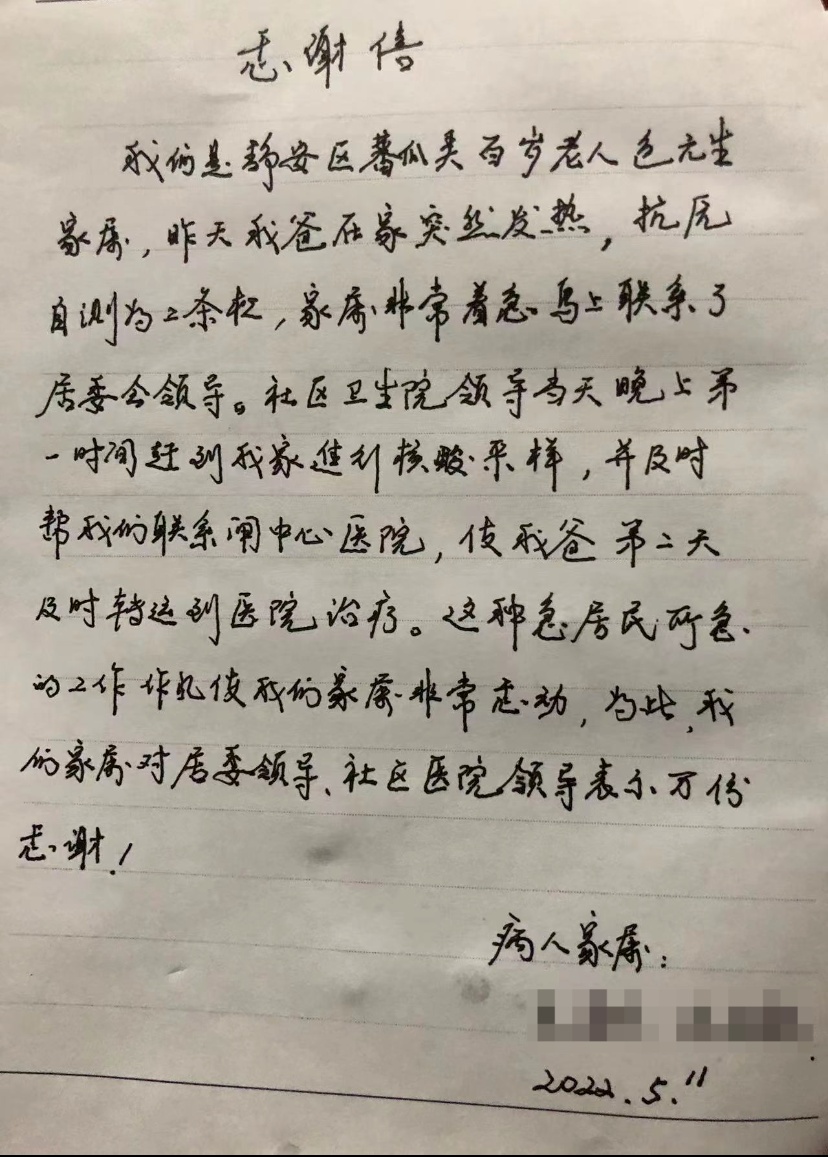 感谢信
我们是静安区蕃瓜弄百岁老人包元生
家属，昨天我爸在家突然发热，抗原
自测为2条杠，家属非常着急。马上联系了
居委会领导。社区卫生院领导当天晚上第
一时间赶到我家进行核酸采样，并及时
帮我们联系闸中心医院，使我爸第二天
及时转运到医院治疗。这种急居民所急
的工作作风使我们家属非常感动，为此，我
们家属对居委领导、社区医院领导表示万份
感谢！
病人家属：
2022.5.11